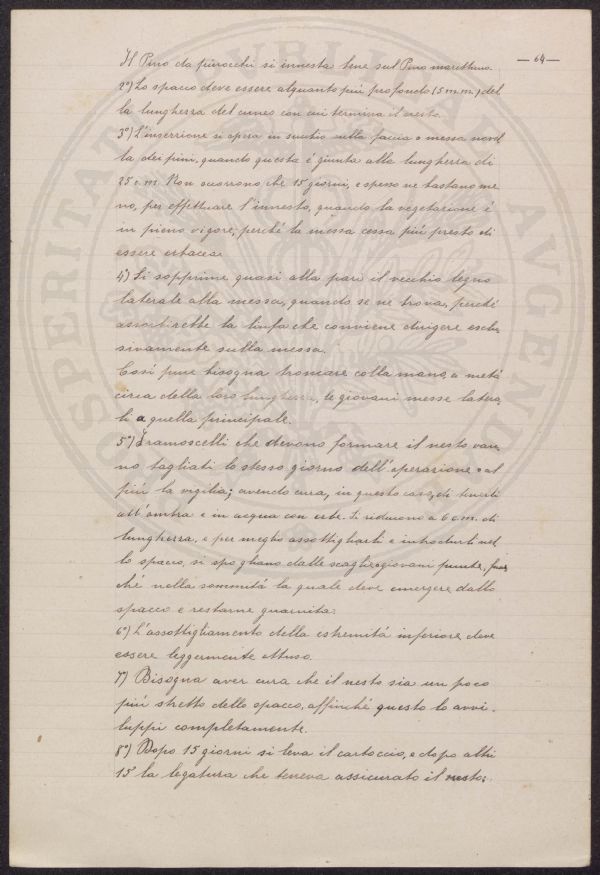 — 64 —
Il Pino da pinocchi si innesta bene sul Pino marittimo.
2°) Lo spacco deve essere alquanto più profondo (5 m.m.) del
la lunghezza del cuneo con cui termina il nesto.
3°) L'inserzione si opera in sulla faccia o messa novel
la dei pini, quando questa è giunta alla lunghezza di
25 c.m. Non occorrono che 15 giorni, e spesso ne bastano me
no, per effettuare l'innesto, quando la vegetazione è
in pieno vigore; perché la messa cessa più presto di
essere erbacea.
4°) Si sopprime quasi alla pari il vecchio legno
laterale alla messa, quando se ne trova, perché
assorbirebbe la linfa che conviene dirigere esclu
sivamente sulla messa.
Così pure bisogna troncare colla mano, a metà
circa della loro lunghezza, le giovani messe latera
li a quella principale.
5°) I ramoscelli che devono formare il nesto van
no tagliati lo stesso giorno dell'operazione o al
più la vigilia; avendo cura, in questo caso, di tenerli
all'ombra e in acqua con erbe. Si riducono a 6 c.m. di
lunghezza, e per meglio assottigliarli e introdurli nel
lo spacco, si spogliano dalle scaglie o giovani punte, fuor
ché nella sommità la quale deve emergere dallo
spacco e restarne guarnita.
6°) L'assottigliamento della estremità inferiore deve
essere leggermente ottuso.
7°) Bisogna aver cura che il nesto sia un poco
più stretto dello spacco, affinché questo lo avvi-
luppi completamente.
8°) Dopo 15 giorni si leva il cartoccio, e dopo altri
15 la legatura che teneva assicurato il nesto;